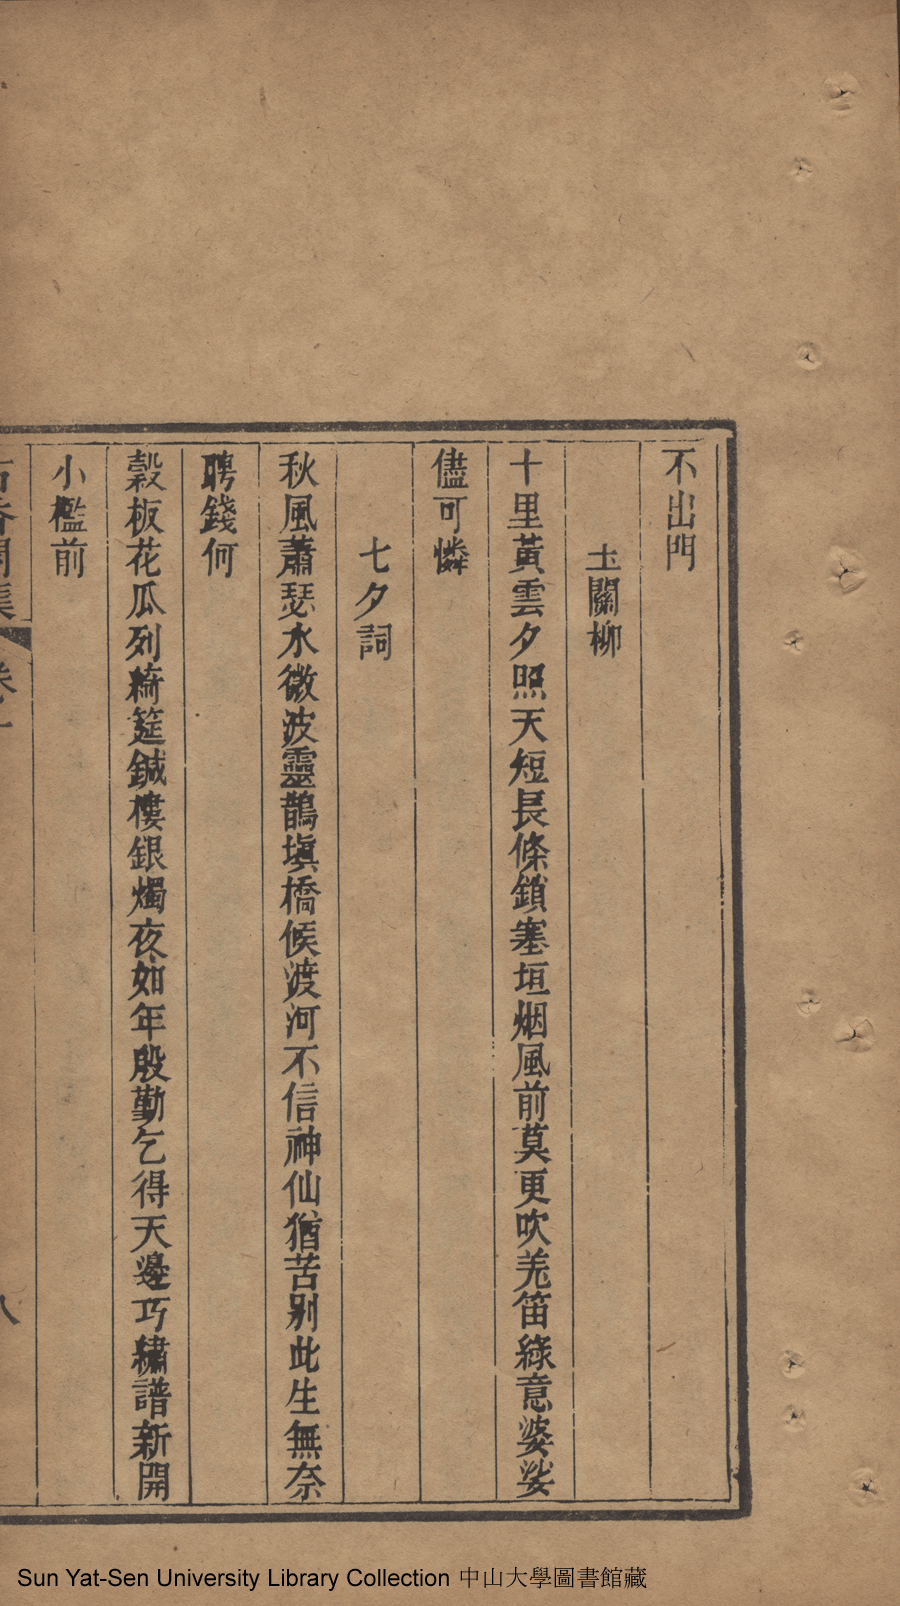 不出門
玉關柳
十里黃雲夕照天短長條鎖塞垣烟風前莫更吹羌笛綠意婆娑
儘可憐
七夕詞
秋風蕭瑟水微波靈鵲塡橋候渡河不信神仙猶苦别此生無奈
聘錢何
穀板花瓜列綺筵鍼樓銀燭夜如年殷勤乞得天邊巧繡譜新開
小檻前
八
Sun Yat-Sen University Library Collection 中山大學圖書館藏